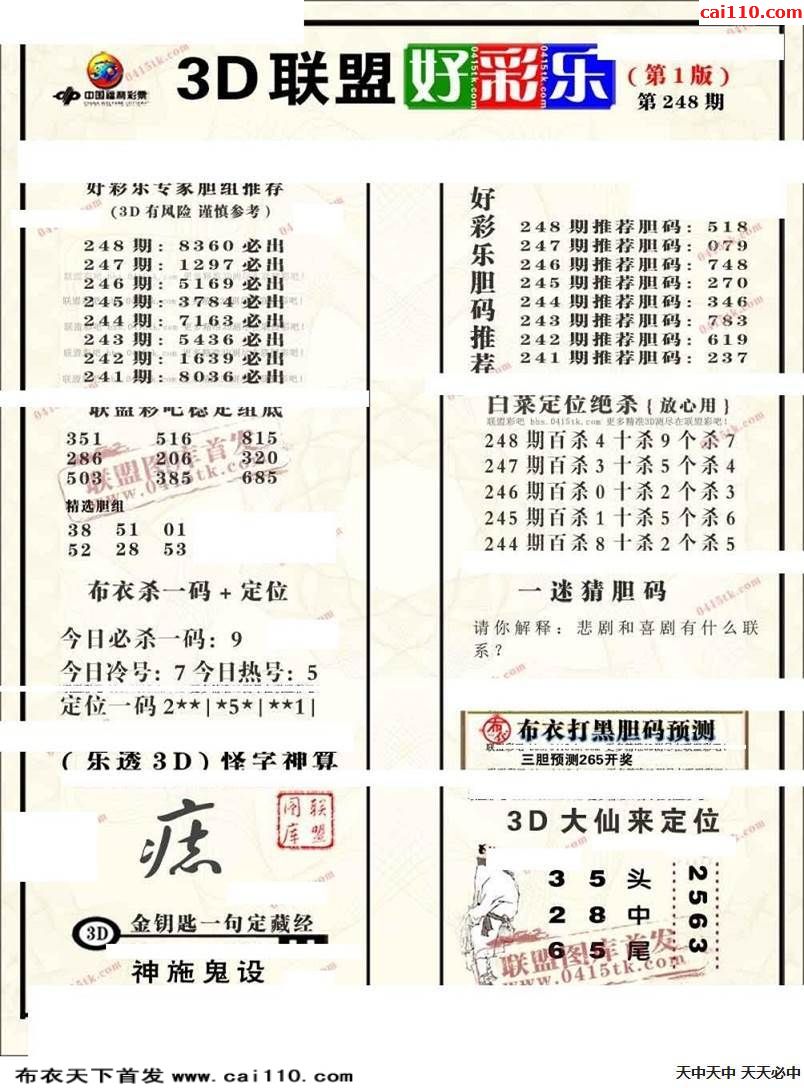 cai110.com
3D联盟好彩乐
(第1版)
第248期
中国福利彩票
CHINA WELFARE LOTTERY
好彩乐专家胆组推荐
(3D有风险 谨慎参考)
248期：8360必出
247期：1297必出
246期：5169必出
245期：3784必出
244期：7163必出
243期：5436必出
242期：1639必出
241期：8036必出
联盟彩吧稳定组底
351 516 815
286 206 320
503 385 685
联盟图库首发
www.0415tk.com
精选胆组
38 51 01
52 28 53
布衣杀一码+定位
今日必杀一码：9
今日冷号：7 今日热号：5
定位一码2**|*5*|**1|
(乐透3D)怪字神算
痣
联盟图库
3D
金钥匙一句定藏经
神施鬼设
好彩乐胆码推荐
248期推荐胆码：518
247期推荐胆码：079
246期推荐胆码：748
245期推荐胆码：270
244期推荐胆码：346
243期推荐胆码：783
242期推荐胆码：619
241期推荐胆码：237
白菜定位绝杀{放心用}
联盟彩吧 bbs.0415tk.com 更多精准3D测尽在联盟彩吧!
248期百杀4十杀9个杀7
247期百杀3十杀5个杀4
246期百杀0十杀2个杀3
245期百杀1十杀5个杀6
244期百杀8十杀2个杀5
一迷猜胆码
请你解释：悲剧和喜剧有什么联
系？
布衣打黑胆码预测
三胆预测265开奖
3D大仙来定位
3 5 头
2 8 中
6 5 尾
2563
联盟图库首发
www.0415tk.com
布衣天下首发www.cai110.com
天中天中 天天必中